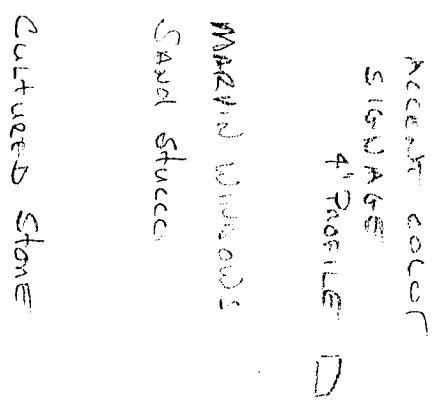 ACCENT COLOR
SIGNAGE
4" PROFILE
MARVIN WINDOWS
SAND Stucco
CULTURED StonE